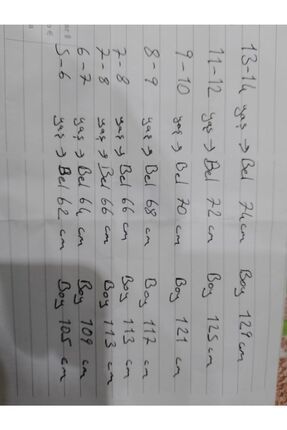 13-14 yaş → Bel 74 cm Boy 129 cm
11-12 yaş → Bel 72 cm Boy 125 cm
9-10 yaş → Bel 70 cm Boy 121 cm
8-9 yaş → Bel 68 cm Boy 117 cm
7-8 yaş → Bel 66 cm Boy 113 cm
7-8 yaş → Bel 66 cm Boy 113 cm
6-7 yaş → Bel 64 cm Boy 109 cm
5-6 yaş → Bel 62 cm Boy 105 cm